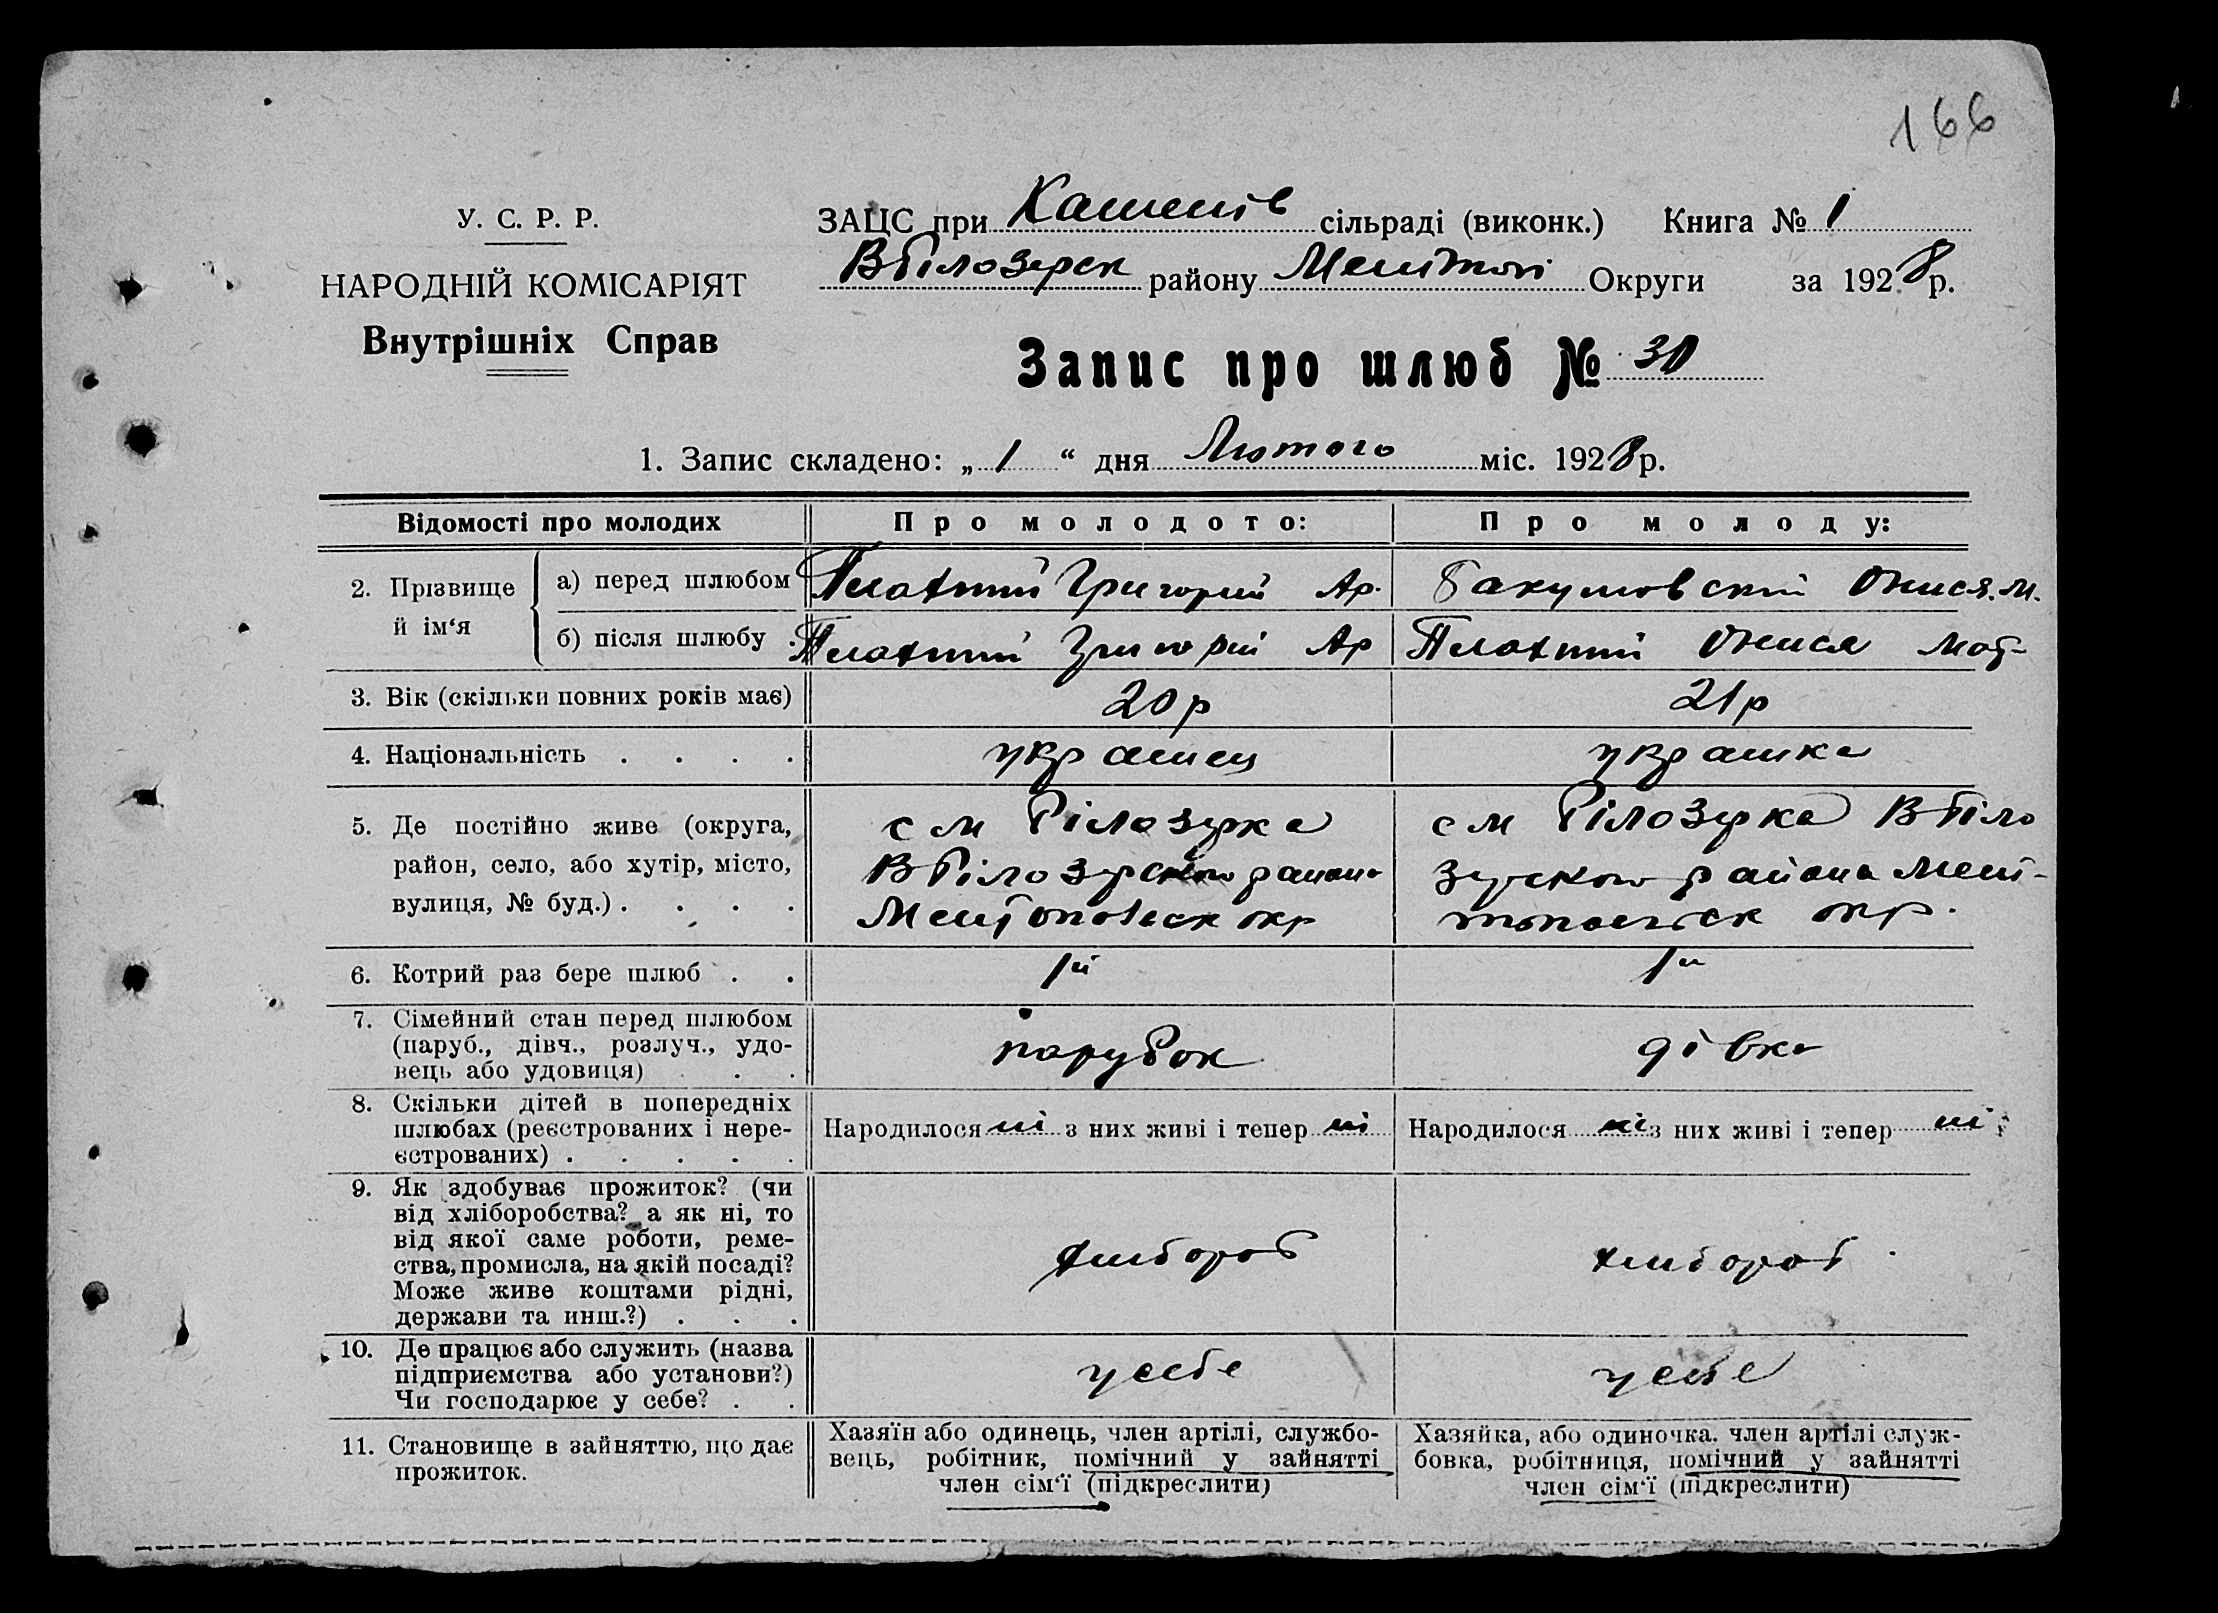 166
У. С. Р. Р.
НАРОДНІЙ КОМІСАРІЯТ
Внутрішніх Справ
ЗАЦС при сільраді (виконк.) Книга № 1
ВБілозерск району Меліт Округи за 1928 р.
Запис про шлюб № 30
1. Запис складено: „ 1 “ дня Лютого міс. 1928 р.
Відомості про молодих
Про молодого:
Про молоду:
2. Прізвище й ім‘я
а) перед шлюбом
Платний Григорій Ар.
Онися. М.
б) після шлюбу .
Платний Григорій Ар
Платний Онися Мат-
3. Вік (скільки повних років має)
20 р
21 р
4. Національність . . . .
українец
українка
5. Де постійно живе (округа,
район, село, або хутір, місто,
вулиця, № буд.) . . . .
с М Білозерка
ВБілозерского района
Мелітопольск окр
с М Білозерка ВБіло
зерского района Мелі-
топольск окр.
6. Котрий раз бере шлюб . .
1й
1й
7. Сімейний стан перед шлюбом
(паруб., дівч., розлуч., удо-
вець або удовиця) . . .
парубок
дівка
8. Скільки дітей в попередніх
шлюбах (реєстрованих і нере-
єстрованих) . . . . .
Народилося ні з них живі і тепер ні
Народилося ні з них живі і тепер ні
9. Як здобуває прожиток? (чи
від хліборобства? а як ні, то
від якої саме роботи, реме-
ства, промисла, на якій посаді?
Може живе коштами рідні,
держави та инш.?) . . .
хлібороб
хлібороб
10. Де працює або служить (назва
підприємства або установи?)
Чи господарює у себе? . .
у себе
у себе
11. Становище в зайняттю, що дає
прожиток.
Хазяїн або одинець, член артілі, службо-
вець, робітник, помічний у зайнятті
член сім‘ї (підкреслити)
Хазяйка, або одиночка. член артілі служ-
бовка, робітниця, помічний у зайнятті
член сім‘ї (підкреслити)